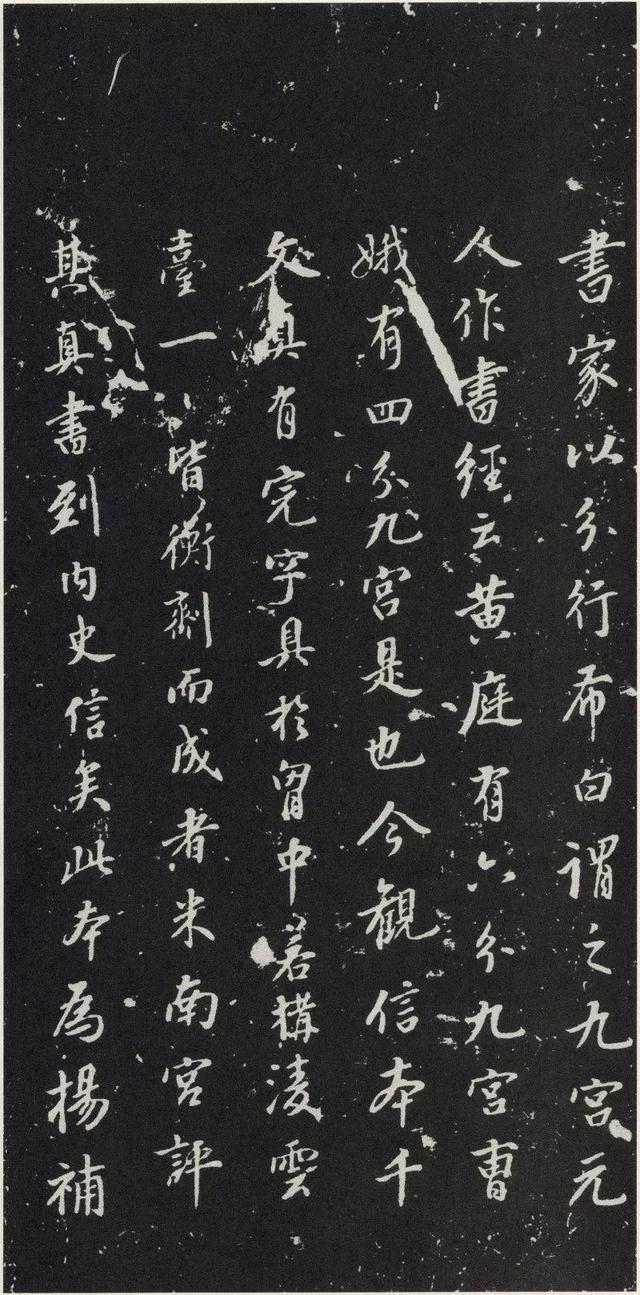 書家以分行布白謂之九宮元
人作書經云黄庭有六分九宮曹
娥有四分九宮是也今觀信本千
文真有完字具於胷中若構凌雲
臺一〻皆衡劑而成者米南宮評
其真書到内史信矣此本為楊補